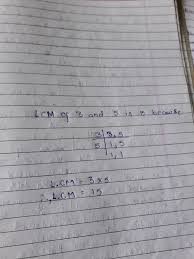 LCM of 3 and 5 is 15 because
3 | 3, 5
5 | 1, 5
1, 1
LCM = 3 x 5
∴ LCM = 15